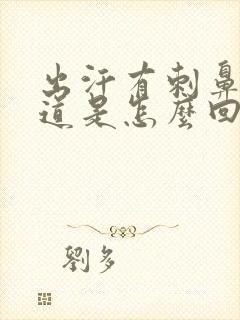 出汗有刺鼻
道是怎麼回
劉多